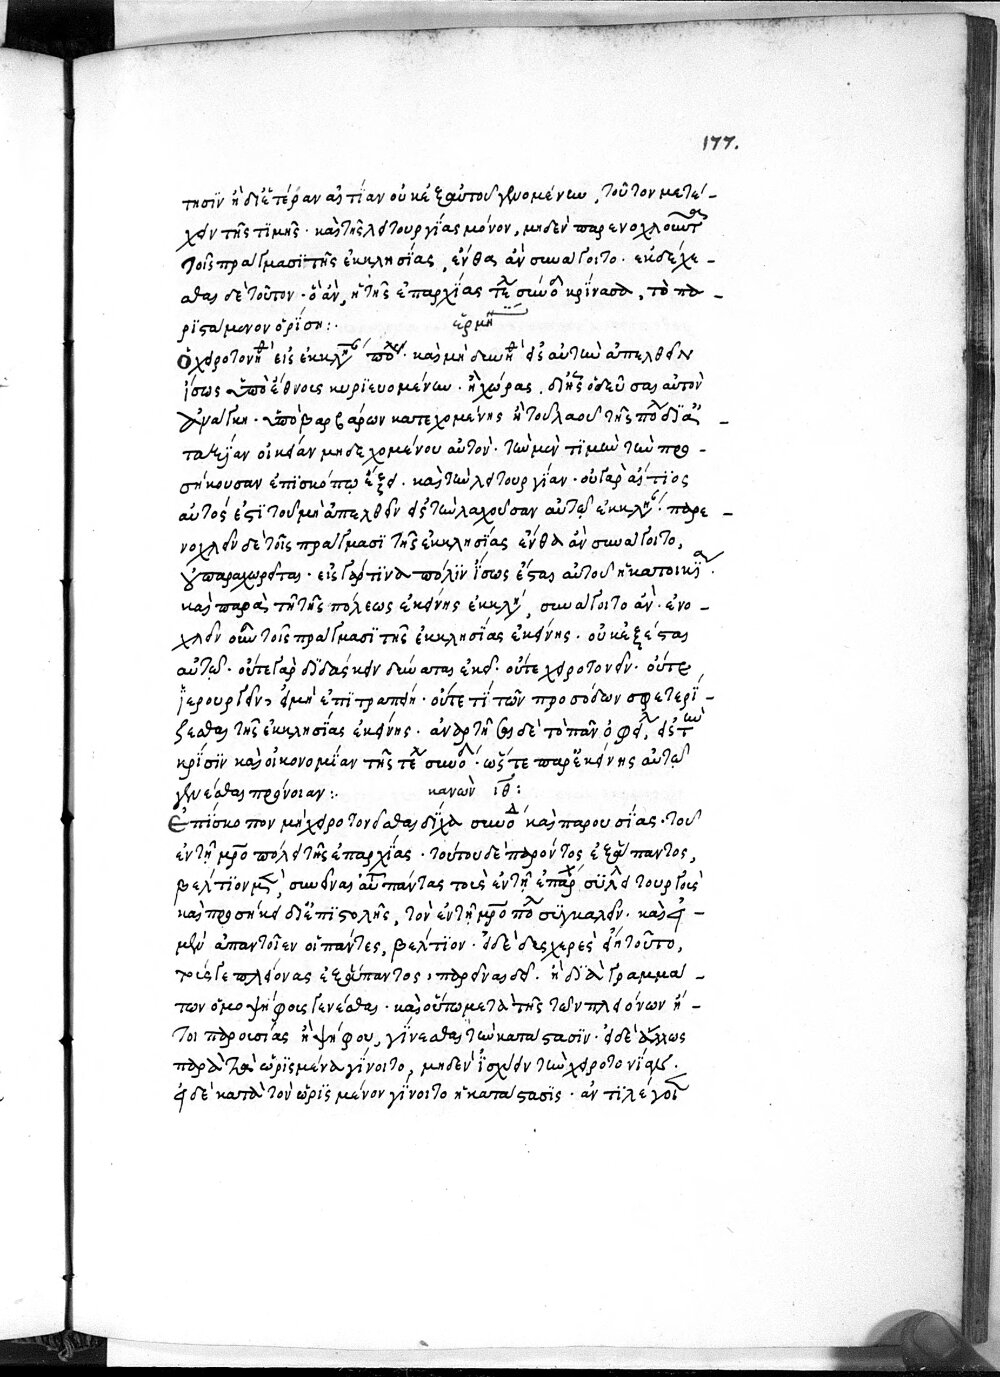 177.
τησϊν ἢ δι' ἑτέραν αἰτίαν οὐκ ἐξ αὐτοῦ γενομένην, τοῦτον μετέ-
χειν τῆς τιμῆς · καὶ τῆς λειτουργίας μόνον, μηδὲν παρενοχλοῦντα
τοῖς πράγμασϊ τῆς ἐκκλησίας, ἔνθα ἂν συνάγοιτο · ἐκδέχε-
σθαι δὲ τοῦτον · ὃ ἂν, ἡ τῆς ἐπαρχίας τελ συνοδ κρίνασα, τὸ πα-
ρϊσταμενον ὁρίση :·
ἑρμη
Ὁ χειροτονηθ εἰς ἐκκλησ πολ · καὶ μὴ δυνηθ εἰς αὐτὴν ἀπελθεῖν
ἴσως ὑπὸ ἔθνους κυριευομένην · ἢ χώρας, δι' ἧς ὁδεῦσαι αὐτὸν
ἀνάγκη · ὑπὸ βαρβάρων κατεχομένης ἢ τοῦ λαοῦ τῆς πολ δϊὰ
ταξίαν οἰκείαν μὴ δεχομένου αὐτὸν · τὴν μὲν τϊμὴν τὴν προ-
σήκουσαν ἐπϊσκόπῳ ἕξει · καὶ τὴν λειτουργίαν · οὐ γὰρ αἴτιος
αὐτός ἐστϊ τοῦ μὴ ἀπελθεῖν εἰς τὴν λαχοῦσαν αὐτῷ ἐκκλησ · παρε-
νοχλεῖν δὲ τοῖς πράγμασϊ τῆς ἐκκλησίας ἔνθα ἂν συνάγοιτο,
οὐ παραχωρεῖται · εἰς γάρ τϊνα πόλϊν ἴσως ἔσται αὐτοῦ ἡ κατοικϊα ·
καὶ παρὰ τῇ τῆς πόλεως ἐκείνης ἐκκλη, συνάγοιτο ἄν · ἐνο-
χλεῖν οὖν τοῖς πράγμασϊ τῆς ἐκκλησίας ἐκείνης · οὐκ ἐξέσται
αὐτῷ · οὔτε γὰρ δϊδάσκειν δύναται ἐκεῖ · οὔτε χειροτονεῖν · οὔτε
ἱερουργεῖν, εἰ μὴ ἐπϊτραπείη · οὔτε τϊ τῶν προσόδων σφετερί-
ζεσθαι τῆς ἐκκλησίας ἐκείνης · ἀναρτῆσαι δὲ τὸ πᾶν ὀφείλ, εἰς τὴν
κρίσϊν καὶ οἰκονομίαν τῆς τελ συνοδ · ὥστε παρ' ἐκείνης αὐτῷ
γενέσθαι πρόνοιαν :·
κανὼν ιθ :
Ἐπίσκοπον μὴ χειροτονεῖσθαι δίχα συνοδ καὶ παρουσίας · τοῦ
ἐν τῇ μρο πόλει τῆς ἐπαρχίας · τούτου δὲ παρόντος ἐξάπαντος,
βέλτϊον μὲν, συνεῖναι ἅπαντας τοὺς ἐν τῇ ἐπαρχ συλλειτουργοὺς
καὶ προσῆκει δι' ἐπϊστολῆς, τὸν ἐν τῇ μρο πολ συγκαλεῖν · καὶ εἰ
μὲν ἀπαντοῖεν οἱ πάντες, βέλτϊον · εἰ δὲ δυσχερὲς εἴη τοῦτο,
τούς γε πλείονας ἐξάπαντος, παρεῖναι δεῖ · ἢ δϊὰ γραμμά-
των ὁμοψήφους γενέσθαι · καὶ οὕτω μετὰ τῆς τῶν πλειόνων ἤ-
τοι παρουσίας ἢ ψήφου, γίνεσθαι τὴν κατάστασϊν · εἰ δὲ ἄλλως
παρὰ τὰ ὡρϊσμένα γίνοιτο, μηδὲν ἰσχύειν τὴν χειροτονίαν ·
εἰ δὲ κατὰ τὸν ὡρϊσμένον γίνοιτο ἡ κατάστασϊς · ἀντϊλέγοι